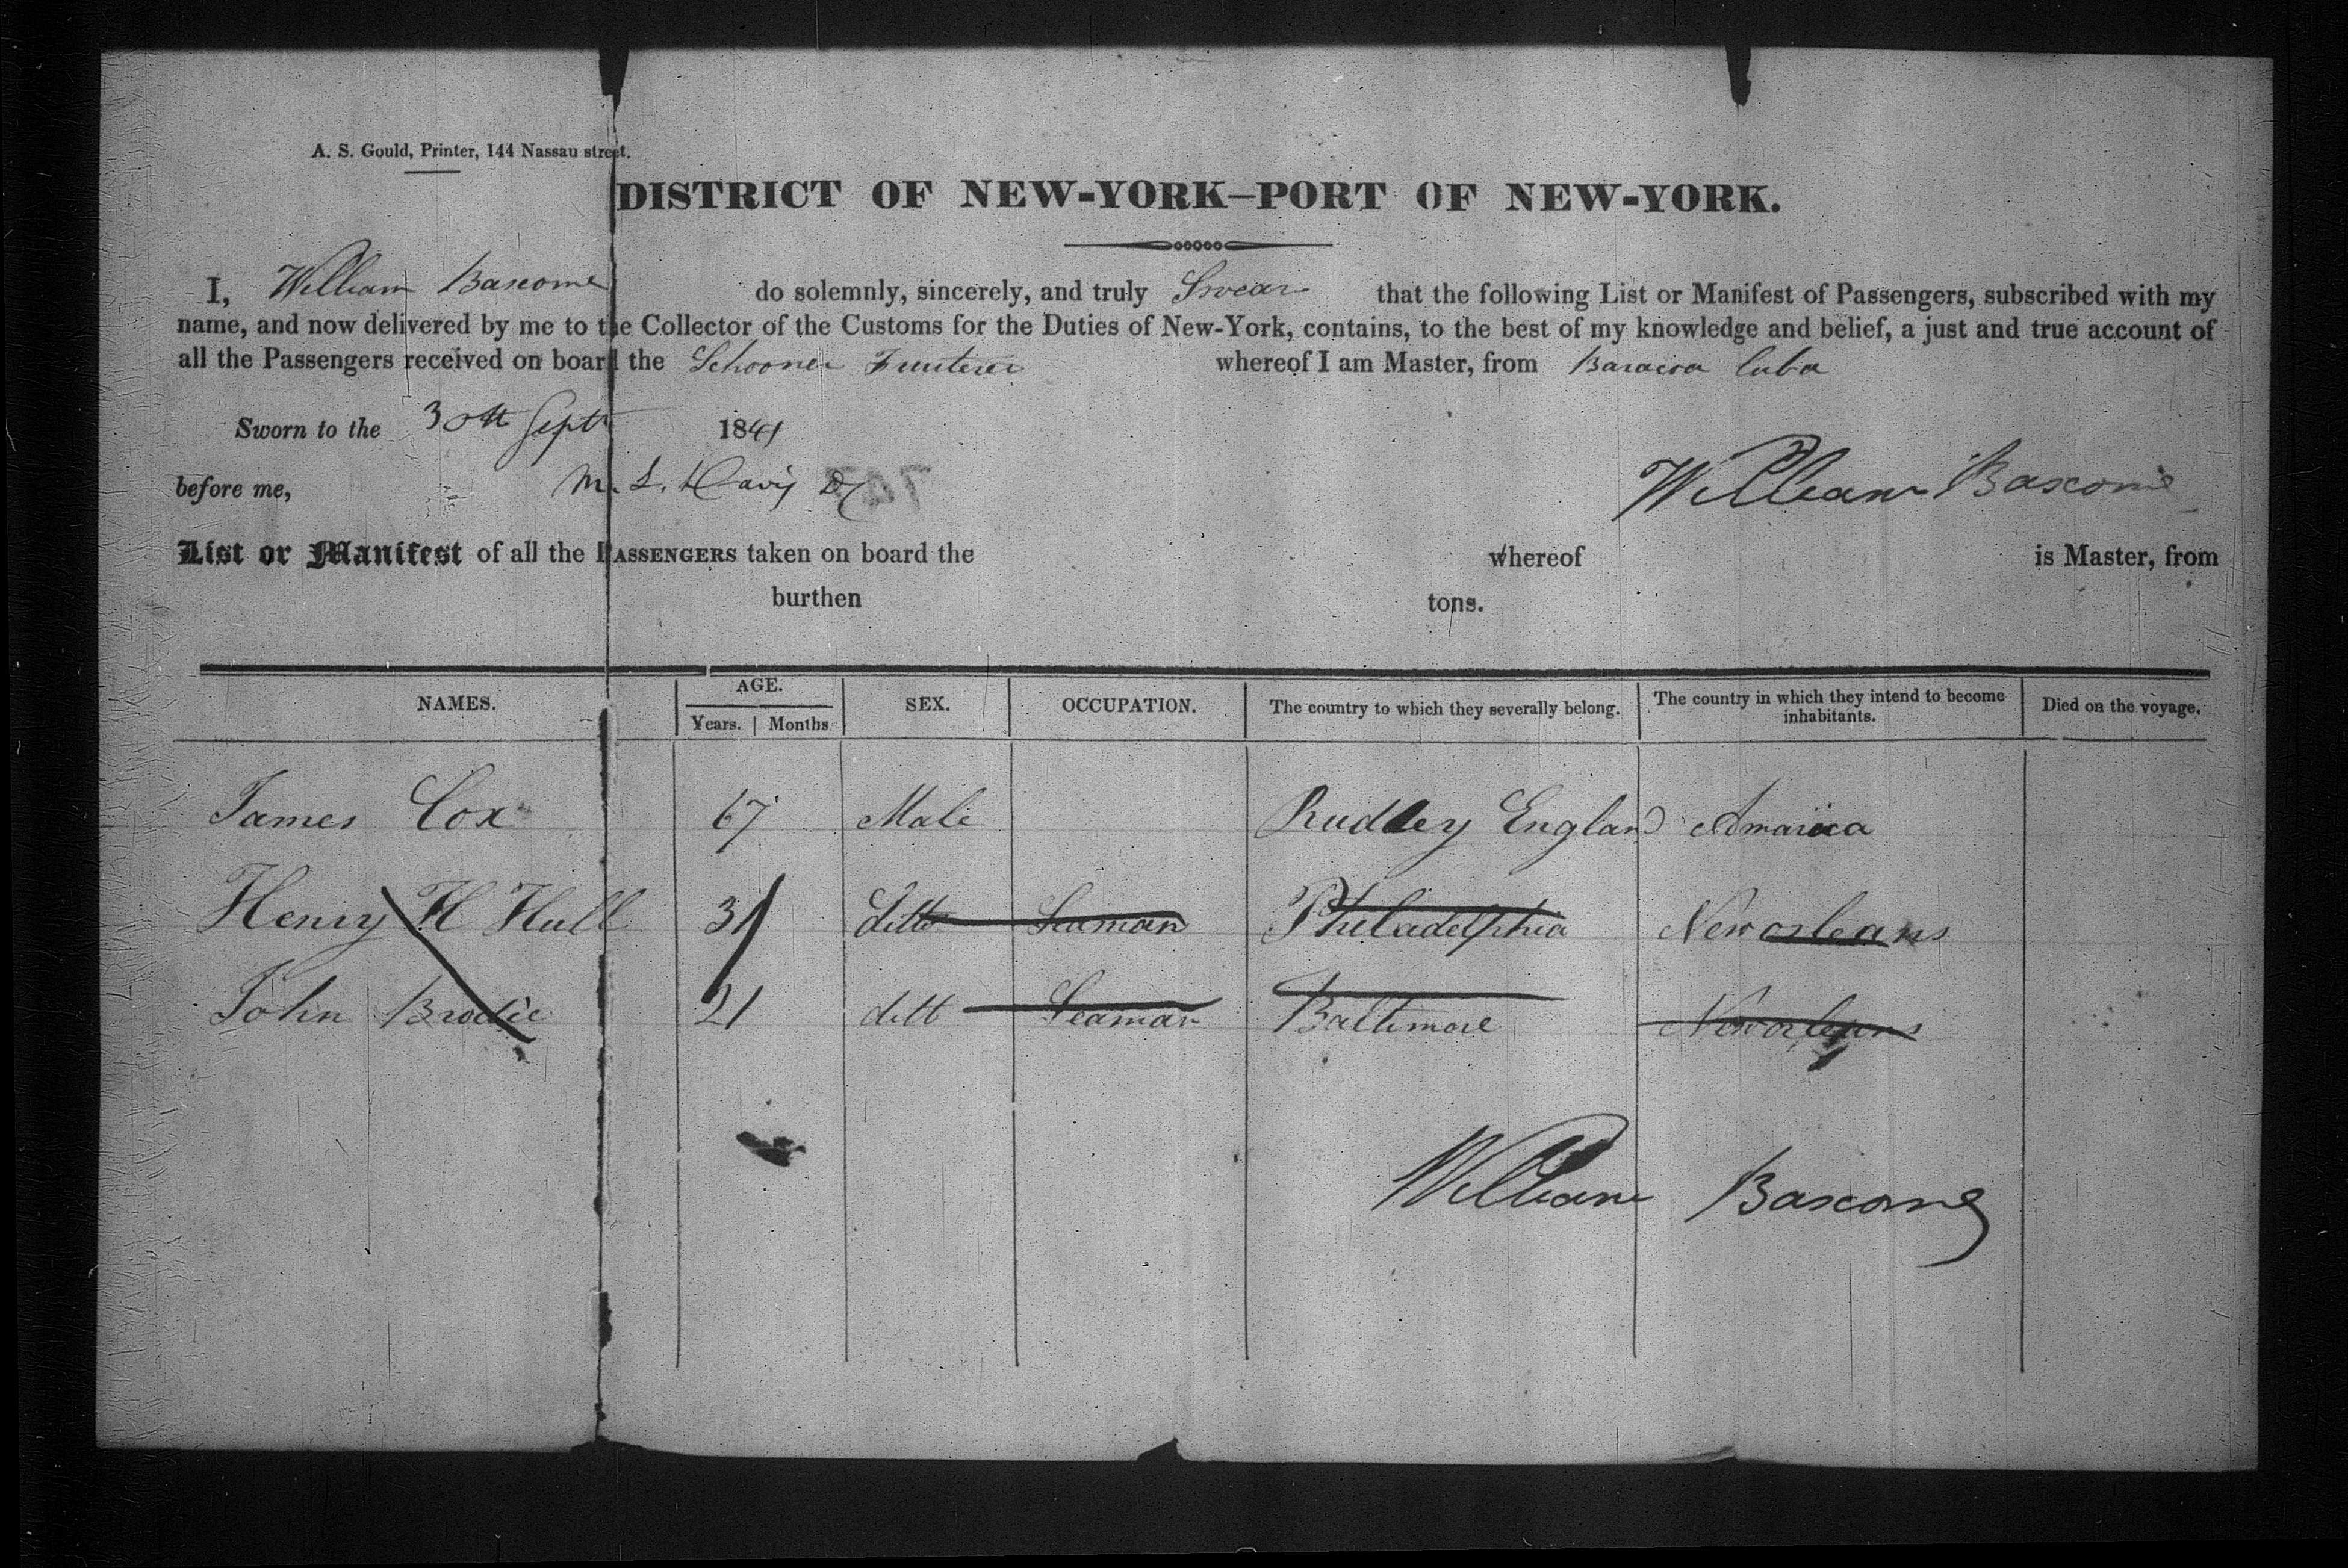 A. S. Gould, Printer, 144 Nassau street.
DISTRICT OF NEW-YORK–PORT OF NEW-YORK.
I, William Bascome do solemnly, sincerely, and truly Swear that the following List or Manifest of Passengers, subscribed with my
name, and now delivered by me to the Collector of the Customs for the Duties of New-York, contains, to the best of my knowledge and belief, a just and true account of
all the Passengers received on board the Schooner whereof I am Master, from Baracoa Cuba
Sworn to the 30th Sept 1841
before me, M. L. Davis William Bascome
List or Manifest of all the PASSENGERS taken on board the whereof is Master, from
burthen tons.
NAMES. AGE. SEX. OCCUPATION. The country to which they severally belong. The country in which they intend to become inhabitants. Died on the voyage.
Years. Months
James Cox 67 Male England
Henry H Hull 31 ditto Seaman Philadelphia New orleans
John Brodie 21 ditt Seaman Baltimore New orleans
William Bascome